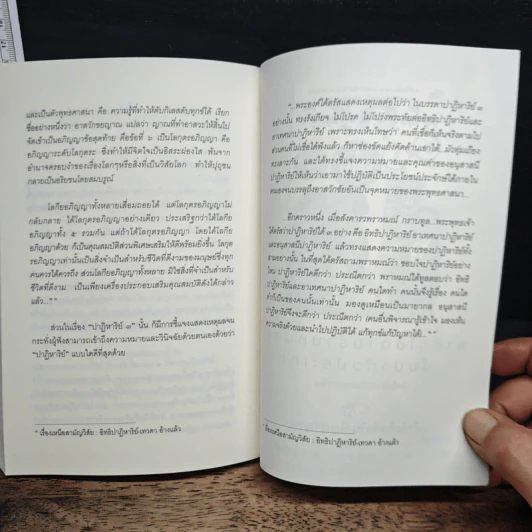 และเป็นตัวพุทธศาสนา คือ ความรู้ที่ทำให้ดับกิเลสดับทุกข์ได้ เรียก
ชื่ออย่างหนึ่งว่า อาสวักขยญาณ แปลว่า ญาณที่ทำอาสวะให้สิ้นไป
จัดเข้าเป็นอภิญญาข้อสุดท้าย คือข้อที่ ๖ เป็นโลกุตรอภิญญา คือ
อภิญญาระดับโลกุตระ ซึ่งทำให้มีจิตใจเป็นอิสระผ่องใส พ้นจาก
อำนาจครอบงำของเรื่องโลกๆหรือสิ่งที่เป็นวิสัยโลก ทำให้ปุถุชน
กลายเป็นอริยชนโดยสมบูรณ์
โลกียอภิญญาทั้งหลายเสื่อมถอยได้ แต่โลกุตรอภิญญาไม่
กลับกลาย ได้โลกุตรอภิญญาอย่างเดียว ประเสริฐกว่าได้โลกีย
อภิญญาทั้ง ๕ รวมกัน แต่ถ้าได้โลกุตรอภิญญา โดยได้โลกีย
อภิญญาด้วย ก็เป็นคุณสมบัติส่วนพิเศษเสริมให้ดีพร้อมยิ่งขึ้น โลกุต
รอภิญญาเท่านั้นเป็นสิ่งจำเป็นสำหรับชีวิตที่ดีงามของมนุษย์ซึ่งทุก
คนควรได้ควรถึง ส่วนโลกียอภิญญาทั้งหลาย มิใช่สิ่งที่จำเป็นสำหรับ
ชีวิตที่ดีงาม เป็นเพียงเครื่องประกอบเสริมคุณสมบัติดังได้กล่าว
แล้ว..."
ส่วนในเรื่อง "ปาฏิหาริย์ ๓" นั้น ก็มีการชี้แจงแสดงเหตุผลจน
กระทั่งผู้ฟังสามารถเข้าถึงความหมายและวินิจฉัยด้วยตนเองด้วยว่า
"ปาฏิหาริย์" แบบใดดีที่สุดด้วย
เรื่องเหนือสามัญวิสัย : อิทธิปาฏิหาริย์-เทวดา อ้างแล้ว
"...พระองค์ได้ตรัสแสดงเหตุผลต่อไปว่า ในบรรดาปาฏิหาริย์ ๓
อย่างนั้น ทรงรังเกียจ ไม่โปรด ไม่โปร่งพระทัยต่ออิทธิปาฏิหาริย์และ
อาเทศนาปาฏิหาริย์ เพราะทรงเห็นโทษว่า คนที่เชื่อก็เห็นจริงตามไป
ส่วนคนที่ไม่เชื่อได้ฟังแล้ว ก็หาช่องขัดแย้งคัดค้านเอาได้
ทะเลาะกัน และได้ทรงชี้แจงความหมายและคุณค่าของอนุสาสนี
ปาฏิหาริย์ให้เห็นว่าเอามาใช้ปฏิบัติเป็นประโยชน์ประจักษ์ได้ภายใน
ตนเองจนบรรลุถึงอาสวักขัยอันเป็นจุดหมายของพระพุทธศาสนา...
อีกคราวหนึ่ง เมื่อสังคารวพราหมณ์ กราบทูล...พระพุทธเจ้า
ได้ตรัสว่าปาฏิหาริย์ มี ๓ อย่าง คือ อิทธิปาฏิหาริย์ อาเทศนาปาฏิหาริย์
และอนุสาสนีปาฏิหาริย์ แล้วทรงแสดงความหมายของปาฏิหาริย์ทั้ง
สามอย่างนั้น ในที่สุดได้ตรัสถามพราหมณ์ว่า ชอบใจปาฏิหาริย์อย่าง
ไหน ปาฏิหาริย์ใดดีกว่า ประณีตกว่า พราหมณ์ได้ทูลตอบว่า อิทธิ
ปาฏิหาริย์และอาเทศนาปาฏิหาริย์ คนใดทำ คนนั้นจึงรู้เรื่อง คนใด
ทำก็เป็นของคนนั้นเท่านั้น มองดูเหมือนเป็นมายากล อนุสาสนี
ปาฏิหาริย์จึงจะดีกว่า ประณีตกว่า (คนอื่นพิจารณารู้เข้าใจ มองเห็น
ความจริงด้วยและนำไปปฏิบัติได้ แก้ทุกข์แก้ปัญหาได้)..."
เรื่องเหนือสามัญวิสัย : อิทธิปาฏิหาริย์-เทวดา อ้างแล้ว